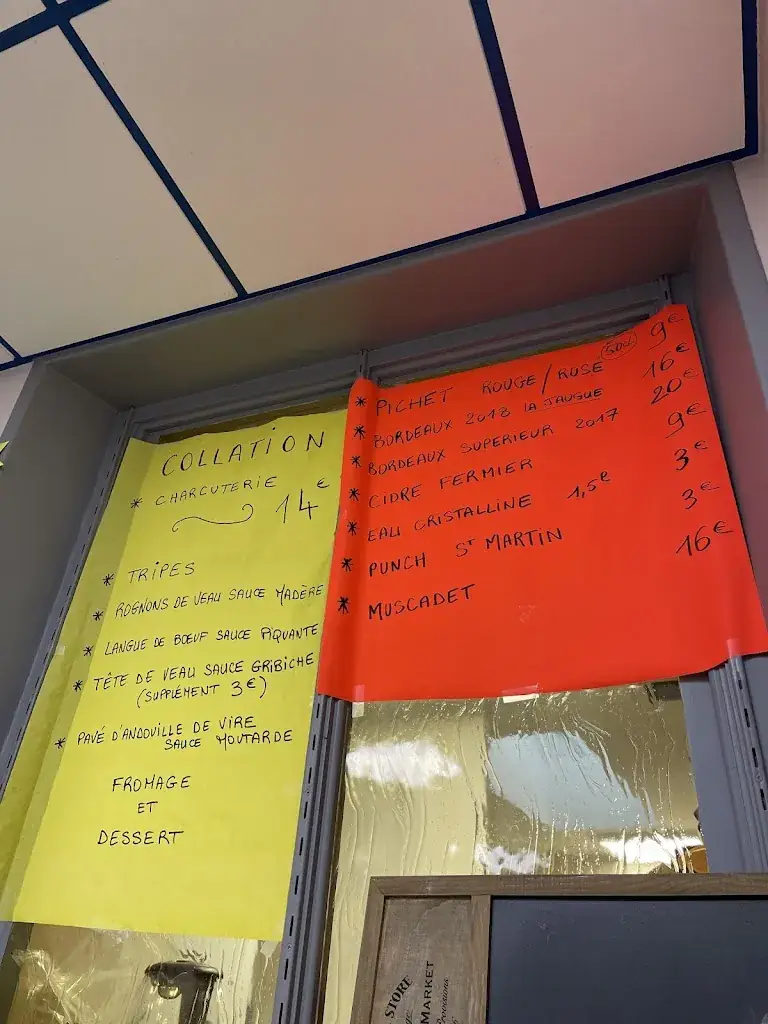 COLLATION
* CHARCUTERIE
14€
* TRIPES
* ROGNONS DE VEAU SAUCE MADÈRE
* LANGUE DE BŒUF SAUCE PIQUANTE
* TÊTE DE VEAU SAUCE GRIBICHE
(SUPPLÉMENT 3€)
* PAVÉ D'ANDOUILLE DE VIRE
SAUCE MOUTARDE
FROMAGE
ET
DESSERT
* PICHET ROUGE/ROSE 50cl 9€
* BORDEAUX 2018 LA JAUGUE 16€
* BORDEAUX SUPERIEUR 2017 20€
* CIDRE FERMIER 9€
* EAU CRISTALLINE 1,5€ 3€
* PUNCH ST MARTIN 3€
* MUSCADET 16€
STORE
MARKET
Provisions